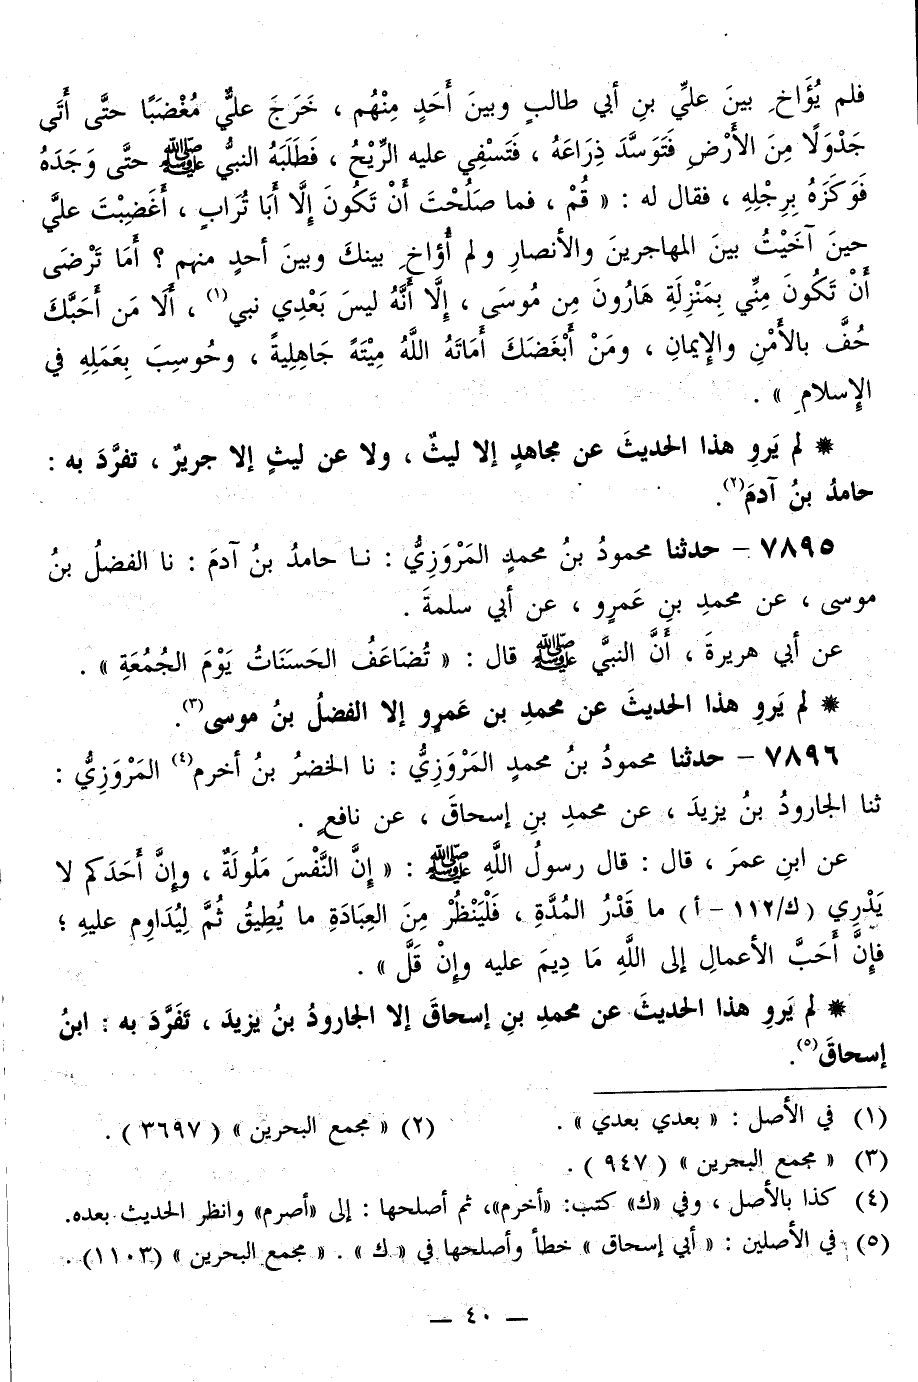 فلم يُؤَاخِ بينَ عليِّ بنِ أبي طالبٍ وبينَ أَحَدٍ مِنْهُم ، خَرَجَ عليٌّ مُغْضَبًا حتَّى أَتَى
جَدْوَلًا مِنَ الأَرْضِ فَتَوَسَّدَ ذِرَاعَهُ ، فَتَسْفِي عليه الرِّيْحُ ، فَطَلَبَهُ النبيُّ ﷺ حتَّى وَجَدَهُ
فَوَكَزَهُ بِرِجْلِهِ ، فقال له : « قُمْ ، فما صَلُحْتَ أَنْ تَكُونَ إِلَّا أَبَا تُرَابٍ ، أَغَضِبْتَ عليَّ
حينَ آخَيْتُ بينَ المهاجرينَ والأنصارِ ولم أُؤاخِ بينكَ وبينَ أحدٍ منهم ؟ أَمَا تَرْضَى
أَنْ تَكُونَ مِنِّي بِمَنْزِلَةِ هَارُونَ مِن مُوسَى ، إِلَّا أَنَّهُ ليسَ بَعْدِي نبي(١) ، أَلَا مَن أَحَبَّكَ
حُفَّ بالأَمْنِ والإيمانِ ، ومَنْ أَبْغَضَكَ أَمَاتَهُ اللَّهُ مِيْتَةً جَاهِلِيةً ، وحُوسِبَ بِعَمَلِهِ في
الإِسلامِ » .
* لم يَروِ هذا الحديثَ عن مجاهدٍ إلا ليثٌ ، ولا عن ليثٍ إلا جريرٌ ، تفرَّدَ به :
حامدُ بنُ آدمَ(٢).
٧٨٩٥ – حدثنا محمودُ بنُ محمدٍ المَرْوَزِيُّ : نـا حامدُ بنُ آدمَ : نا الفضلُ بنُ
موسى ، عن محمدِ بنِ عَمرٍو ، عن أبي سلمةَ .
عن أبي هريرةَ ، أَنَّ النبيَّ ﷺ قال : « تُضَاعَفُ الحَسَنَاتُ يَوْمَ الجُمُعَةِ » .
* لم يَروِ هذا الحديثَ عن محمدِ بن عَمرٍو إلا الفضلُ بنُ موسى(٣).
٧٨٩٦ – حدثنا محمودُ بنُ محمدٍ المَرْوَزِيُّ : نا الخضرُ بنُ أخرم(٤) المَرْوَزِيُّ :
ثنا الجارودُ بنُ يزيدَ ، عن محمدِ بنِ إسحاقَ ، عن نافعٍ .
عن ابنِ عمرَ ، قال : قال رسولُ اللَّهِ ﷺ : « إِنَّ النَّفْسَ مَلُولَةٌ ، وإِنَّ أَحَدَكم لا
يَدْرِي ( ك/١١٢ – أ ) ما قَدْرُ المُدَّةِ ، فَلْيَنْظُرْ مِنَ العِبَادَةِ ما يُطِيقُ ثُمَّ لِيُدَاوِم عليهِ ؛
فإِنَّ أَحَبَّ الأعمالِ إلى اللَّهِ مَا دِيمَ عليه وإِنْ قَلَّ » .
* لم يَروِ هذا الحديثَ عن محمدِ بنِ إسحاقَ إلا الجارودُ بنُ يزيدَ ، تَفَرَّدَ به : ابنُ
إسحاقَ(٥).
(١) في الأصل : « بعدي بعدي » . (٢) « مجمع البحرين » ( ٣٦٩٧ ) .
(٣) « مجمع البحرين » ( ٩٤٧ ) .
(٤) كذا بالأصل ، وفي «ك» كتب: «أخرم»، ثم أصلحها : إلى «أصرم» وانظر الحديث بعده.
(٥) في الأصلين : « أبي إسحاق » خطأ وأصلحها في « ك » . « مجمع البحرين » (١١٠٣) .
— ٤٠ —